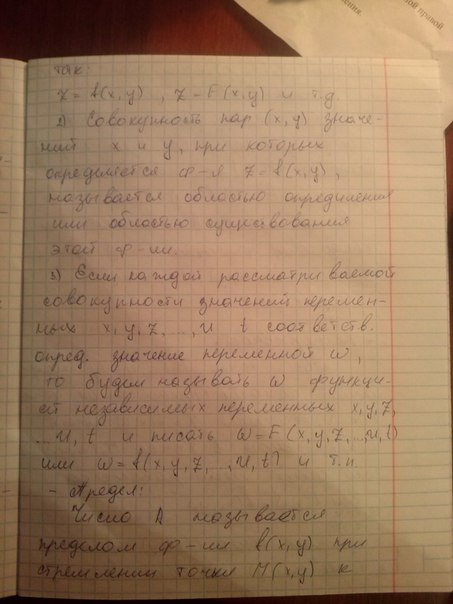 так:
z = f(x,y), z = F(x,y) и т.д.
2) Совокупность пар (x,y) значе-
ний x и y, при которых
определяется ф-я z = f(x,y),
называется областью определения
или областью существования
этой ф-ии.
3) Если каждой рассматриваемой
совокупности значений перемен-
ных x, y, z, ..., u t соответств.
опред. значение переменной ω,
то будем называть ω функци-
ей независимых переменных x, y, z,
... u, t и писать ω = F(x, y, z, .., u, t)
или ω = f(x, y, z, .., u, t) и т.п.
- Предел:
Число A называется
пределом ф-ии f(x,y) при
стремлении точки M(x,y) к